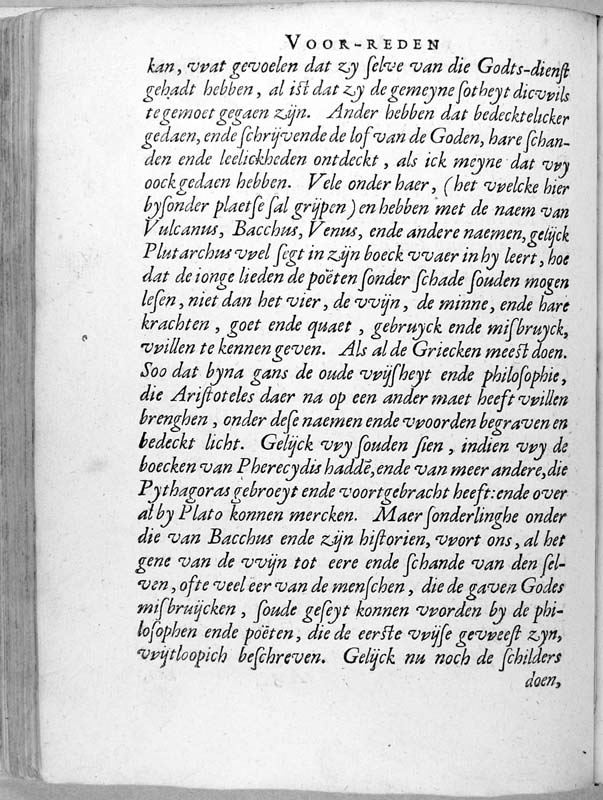 VOOR-REDEN
kan, vvat gevoelen dat zy ſelve van die Godts-dienſt
gehadt hebben, al iſt dat zy de gemeyne ſotheyt dicvvils
te gemoet gegaen zijn. Ander hebben dat bedecktelicker
gedaen, ende ſchrijvende de lof van de Goden, hare ſchan-
den ende leelickheden ontdeckt, als ick meyne dat vvy
oock gedaen hebben. Vele onder haer, (het vvelcke hier
byſonder plaetſe ſal grijpen) en hebben met de naem van
Vulcanus, Bacchus, Venus, ende andere naemen, gelijck
Plutarchus vvel ſegt in zijn boeck vvaer in hy leert, hoe
dat de ionge lieden de poëten ſonder ſchade ſouden mogen
leſen, niet dan het vier, de vvijn, de minne, ende hare
krachten, goet ende quaet, gebruyck ende miſbruyck,
vvillen te kennen geven. Als al de Griecken meeſt doen.
Soo dat byna gans de oude vvijſheyt ende philoſophie,
die Ariſtoteles daer na op een ander maet heeft vvillen
brenghen, onder deſe naemen ende vvoorden begraven en
bedeckt licht. Gelijck vvy ſouden ſien, indien vvy de
boecken van Pherecydis haddē, ende van meer andere, die
Pythagoras gebroeyt ende voortgebracht heeft: ende over
al by Plato konnen mercken. Maer ſonderlinghe onder
die van Bacchus ende zijn hiſtorien, vvort ons, al het
gene van de vvijn tot eere ende ſchande van den ſel-
ven, ofte veel eer van de menſchen, die de gaven Godes
miſbruijcken, ſoude geſeyt konnen vvorden by de phi-
loſophen ende poëten, die de eerſte vvijſe gevveeſt zyn,
vvijtloopich beſchreven. Gelijck nu noch de ſchilders
doen,